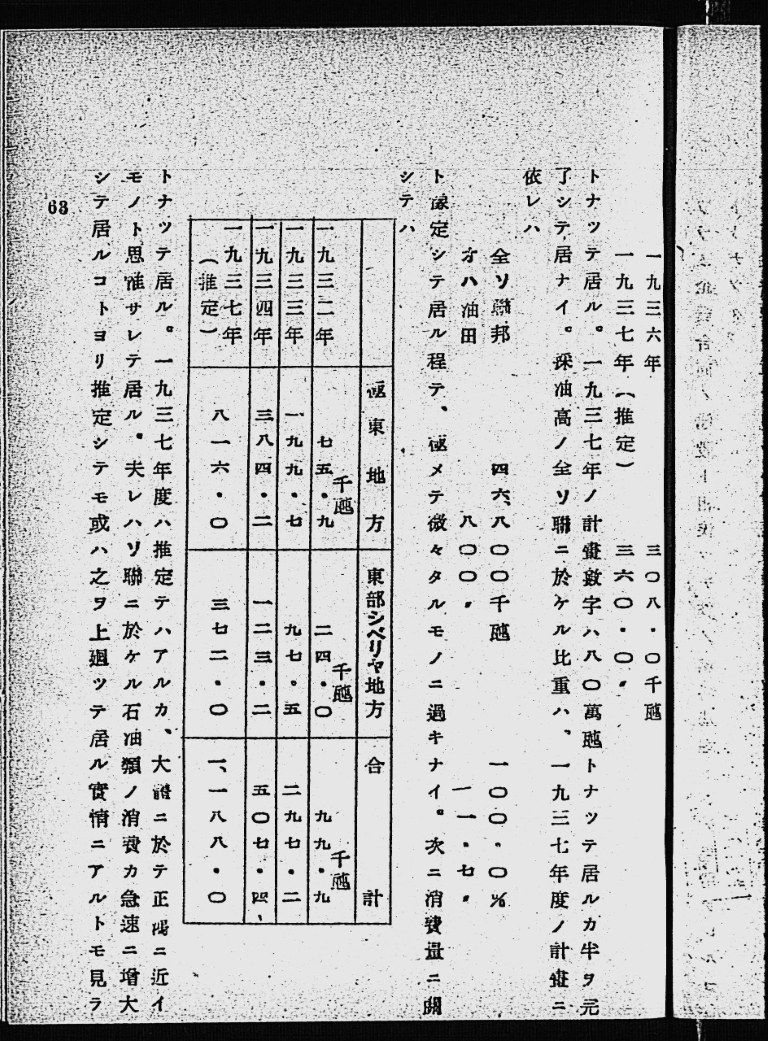 一九三六年 三〇八・〇千瓲
一九三七年(推定) 三六〇・〇〃
トナツテ居ル。一九三七年ノ計畫數字ハ八〇萬瓲トナツテ居ルカ半ヲ元
了シテ居ナイ。採油高ノ全ソ聯ニ於ケル比重ハ、一九三七年度ノ計畫ニ
依レハ
全ソ聯邦 四六、八〇〇千瓲 一〇〇・〇%
オハ油田 八〇〇〃 一一・七〃
ト豫定シテ居ル程テ、極メテ微々タルモノニ過キナイ。次ニ消費量ニ關
シテハ
極東地方 東部シベリヤ地方 合計
一九三二年 七五・九千瓲 二四・〇千瓲 九九・九千瓲
一九三三年 一九九・七 九七・五 二九七・二
一九三四年 三八四・二 一二三・二 五〇七・四
一九三七年(推定) 八一六・〇 三七二・〇 一、一八八・〇
トナツテ居ル。一九三七年度ハ推定テハアルカ、大體ニ於テ正鵠ニ近イ
モノト思惟サレテ居ル。夫レハソ聯ニ於ケル石油類ノ消費カ急速ニ增大
シテ居ルコトヨリ推定シテモ或ハ之ヲ上廻ツテ居ル實情ニアルトモ見ラ
63